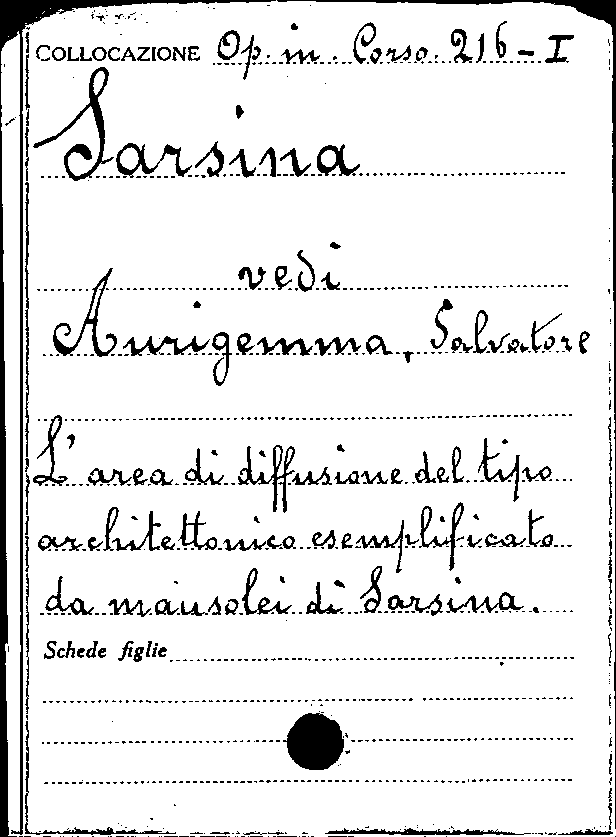 COLLOCAZIONE Op. in. Corso. 216 - I
Sarsina
vedi
Aurigemma, Salvatore
L'area di diffusione del tipo
architettonico esemplificato
da mausolei di Sarsina.
Schede figlie